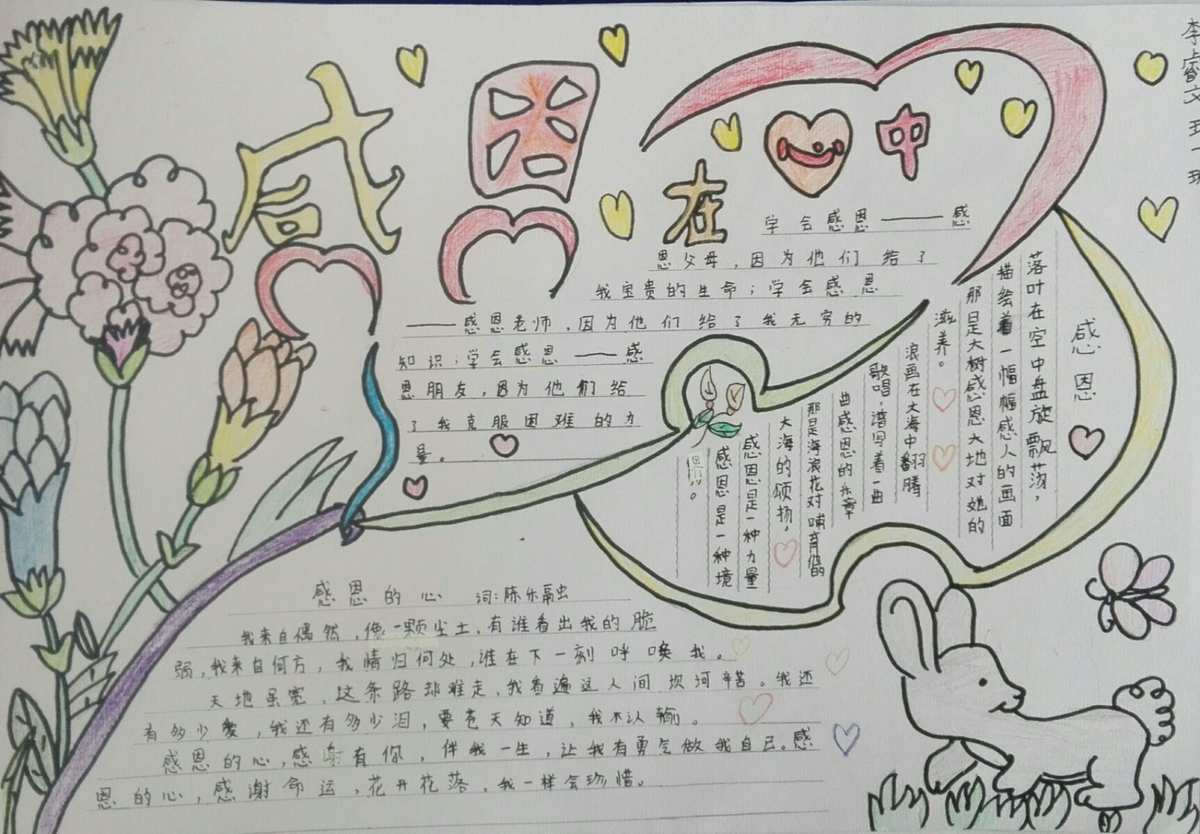 感恩在心中
李睿文
学会感恩——感
恩父母,因为他们给了
我宝贵的生命;学会感恩
——感恩老师,因为他们给了我无穷的
知识;学会感恩——感
恩朋友,因为他们给
了我克服困难的力
量。
感恩
落叶在空中盘旋飘落,
描绘着一幅幅感人的画面
那是大树感恩大地对她的
滋养。
浪画在大海中翻腾
歌唱,谱写着一曲
曲感恩的乐章
那是海浪花对哺育他的
大海的颂扬,
感恩是一种力量
感恩是一种境
感恩的心 词:陈乐融
我来自偶然,像一颗尘土,有谁看出我的脆
弱,我来自何方,我情归何处,谁在下一刻呼唤我。
天地虽宽,这条路却难走,我看遍这人间坎河辛苦。我还
有多少爱,我还有多少泪,要苍天知道,我不认输。
感恩的心,感谢有你,伴我一生,让我有勇气做我自己。感
恩的心,感谢命运,花开花落,我一样会珍惜。